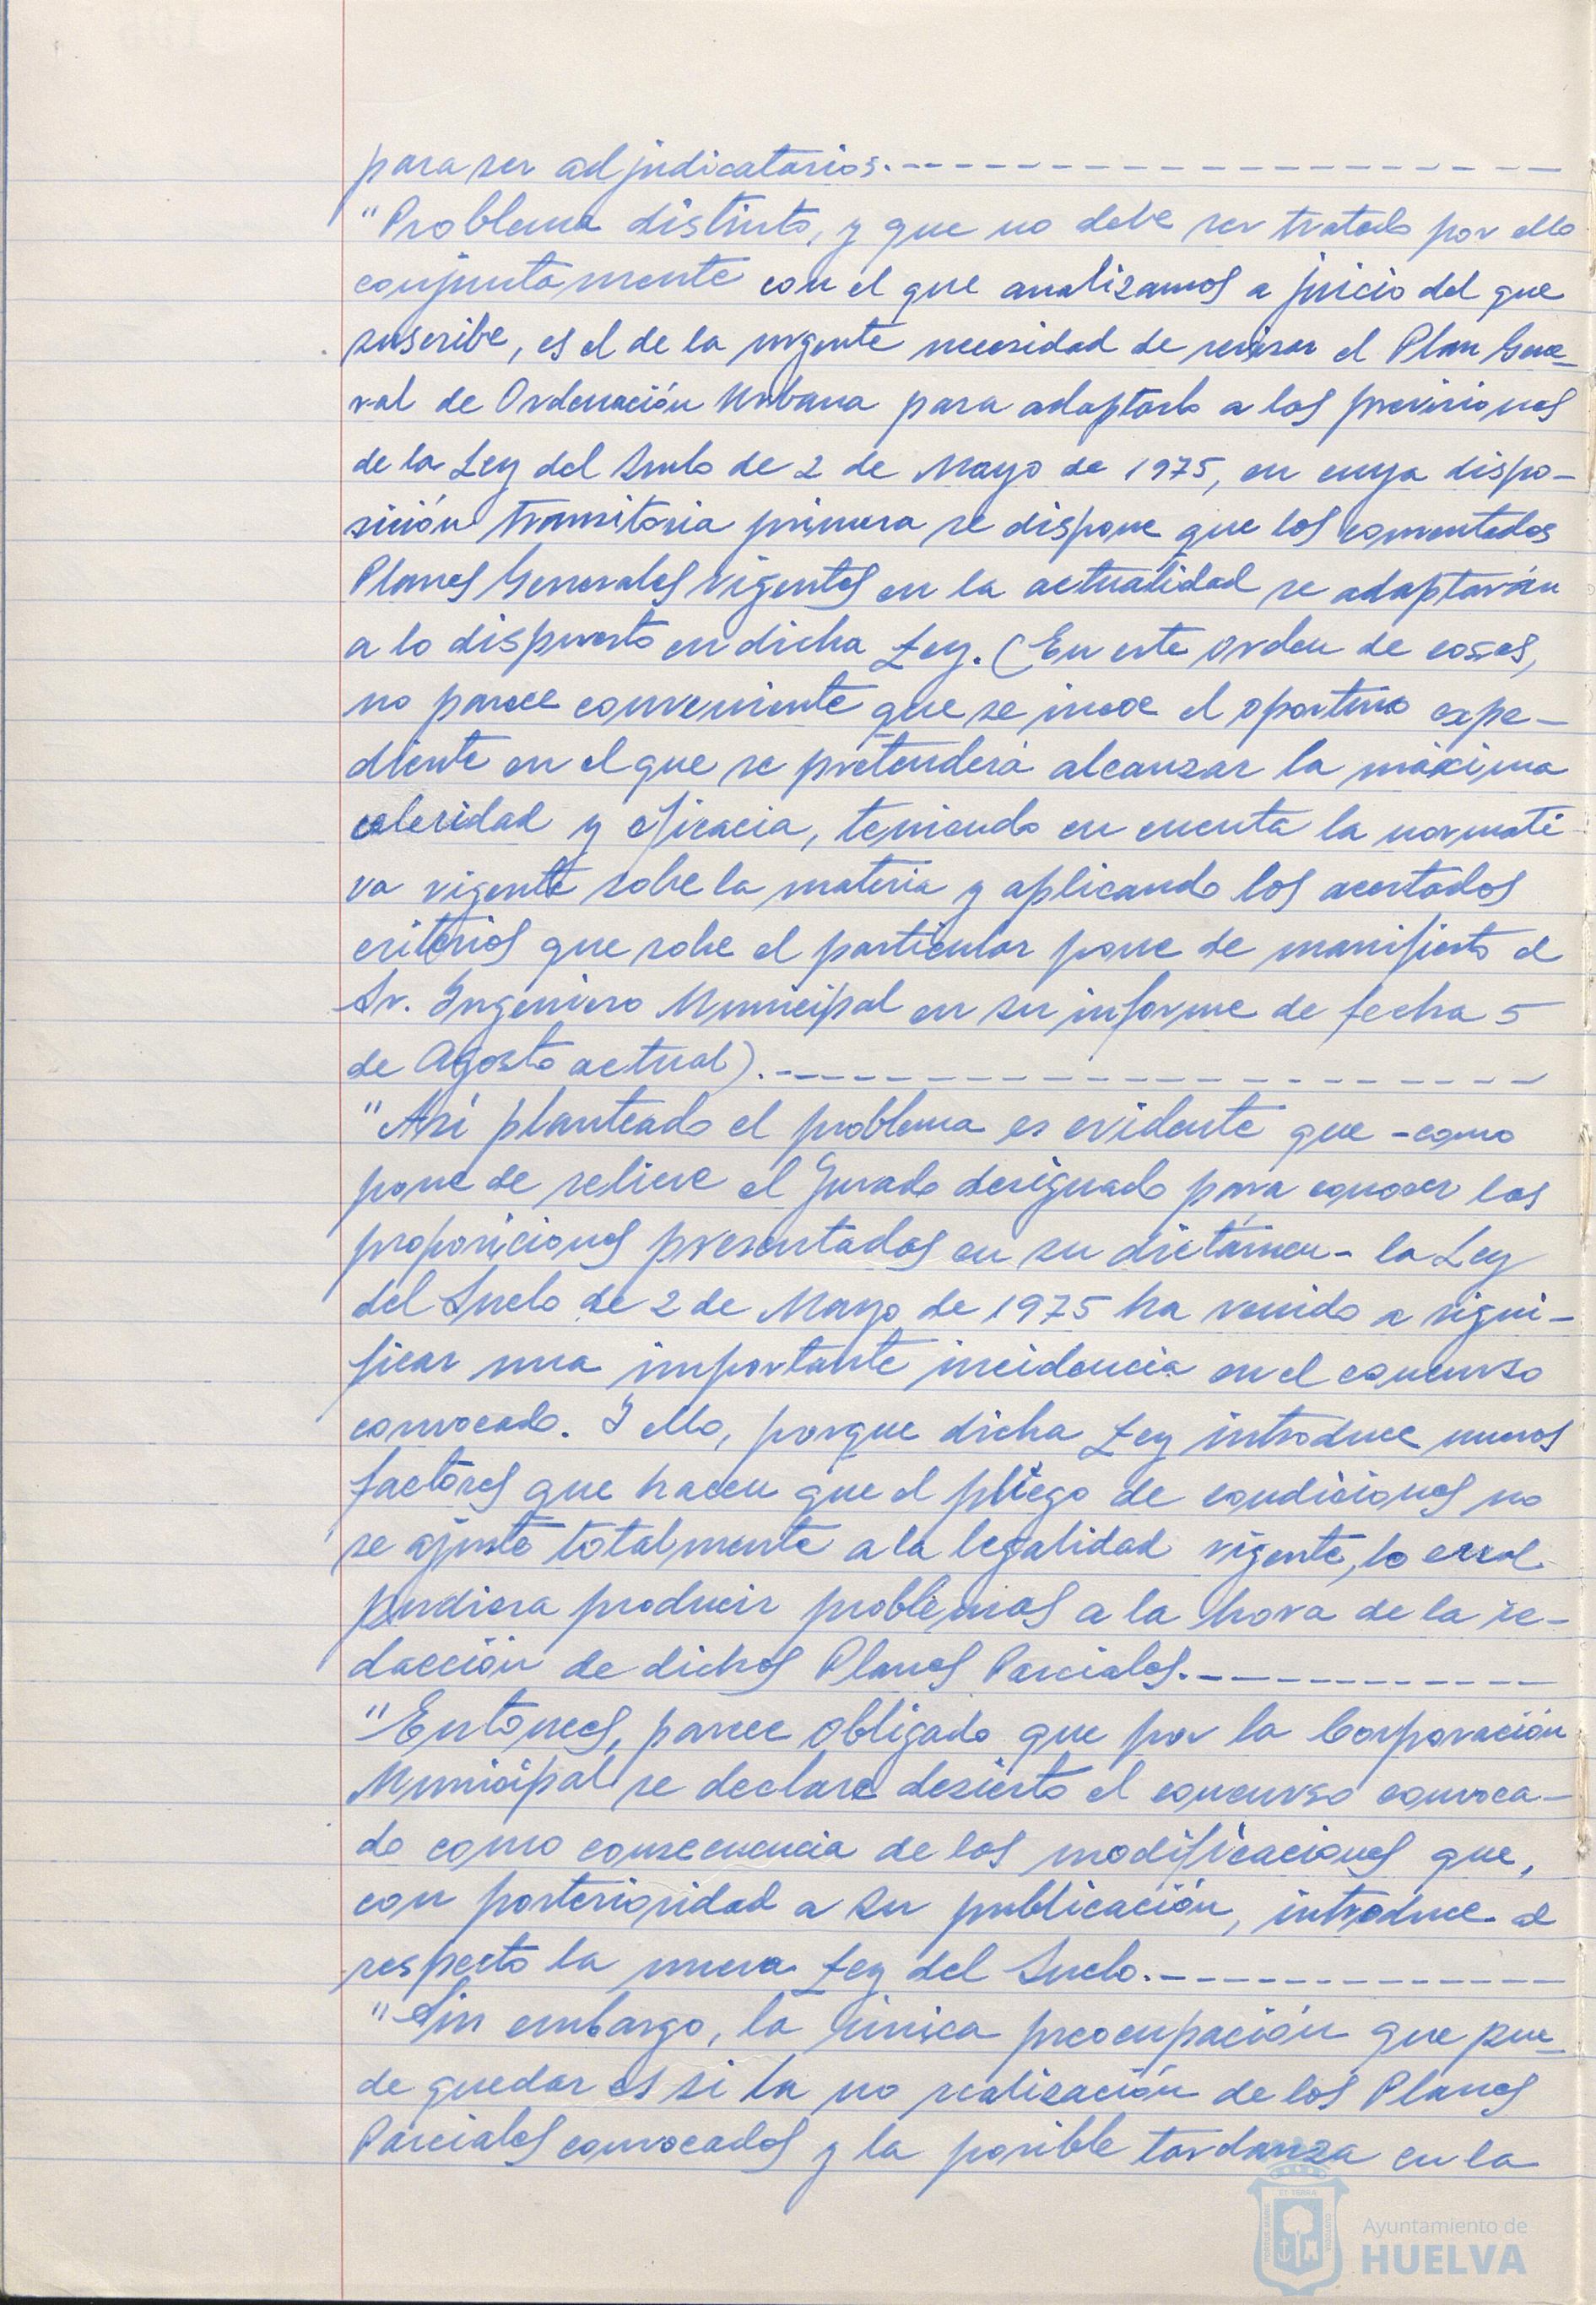 para ser adjudicatarios.--------------------
"Problema distinto, y que no debe ser tratado por ello
conjuntamente con el que analizamos a juicio del que
suscribe, es el de la urgente necesidad de revisar el Plan Gene-
ral de Ordenación Urbana para adaptarlo a las previsiones
de la Ley del Suelo de 2 de Mayo de 1975, en cuya dispo-
sición transitoria primera se dispone que los comentados
Planes Generales vigentes en la actualidad se adaptarán
a lo dispuesto en dicha Ley. (En este orden de cosas,
no parece conveniente que se incoe el oportuno expe-
diente en el que se pretenderá alcanzar la máxima
celeridad y eficacia, teniendo en cuenta la normati-
va vigente sobre la materia y aplicando los acertados
criterios que sobre el particular pone de manifiesto el
Sr. Ingeniero Municipal en su informe de fecha 5
de Agosto actual).--------------------
"Así planteado el problema es evidente que -como
pone de relieve el Jurado designado para conocer las
proposiciones presentadas en su dictámen- la Ley
del Suelo de 2 de Mayo de 1975 ha venido a signi-
ficar una importante incidencia en el concurso
convocado. Y ello, porque dicha Ley introduce nuevos
factores que hacen que el pliego de condiciones no
se ajuste totalmente a la legalidad vigente, lo cual
pudiera producir problemas a la hora de la re-
dacción de dichos Planes Parciales.------------
"Entonces, parece obligado que por la Corporación
Municipal se declare desierto el concurso convoca-
do como consecuencia de las modificaciones que,
con posterioridad a su publicación, introduce al
respecto la nueva Ley del Suelo.-------------
"Sin embargo, la única preocupación que pue-
de quedar es si la no realización de los Planes
Parciales convocados y la posible tardanza en la
Ayuntamiento de
HUELVA